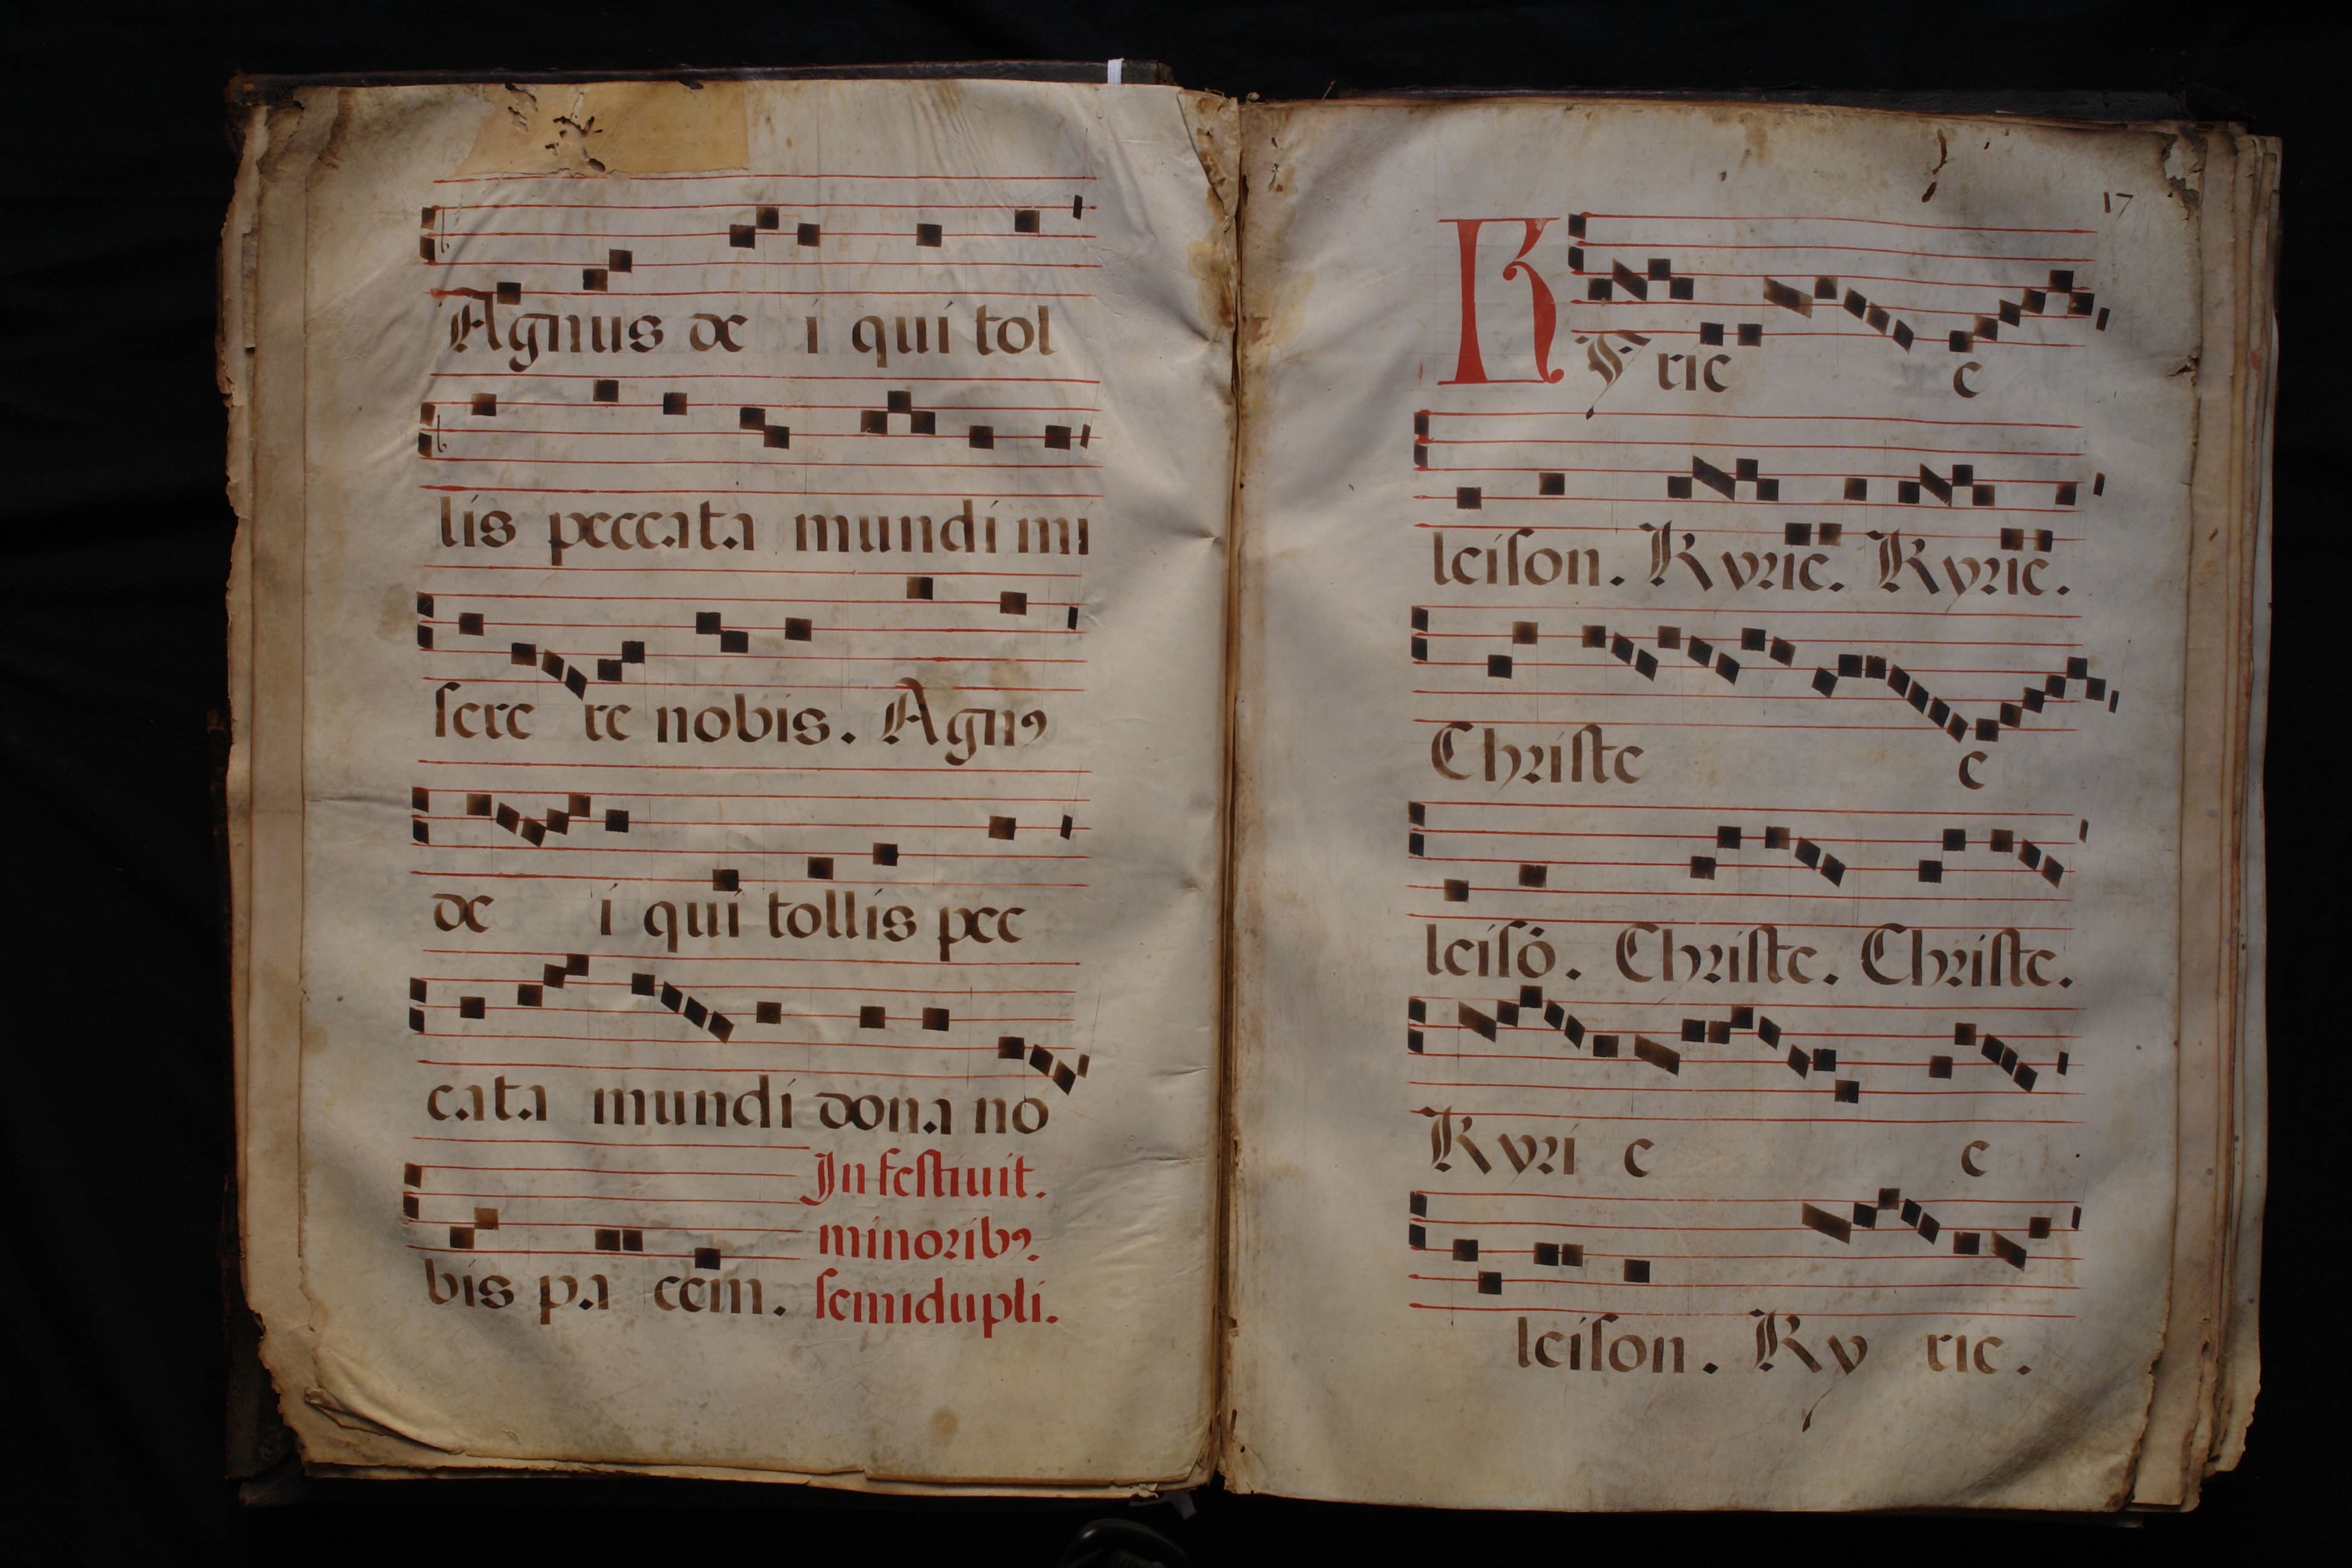 Agnus de i qui tol
lis peccata mundi mi
sere re nobis. Agnꝰ
de i qui tollis pec
cata mundi dona no
bis pa cem.
In festiuit.
minoribꝰ.
semidupli.
17
Kyrie e
leiſon. Kyrie. Kyrie.
Chriſte e
leiſō. Chriſte. Chriſte.
Kyri e e
leiſon. Ky rie.